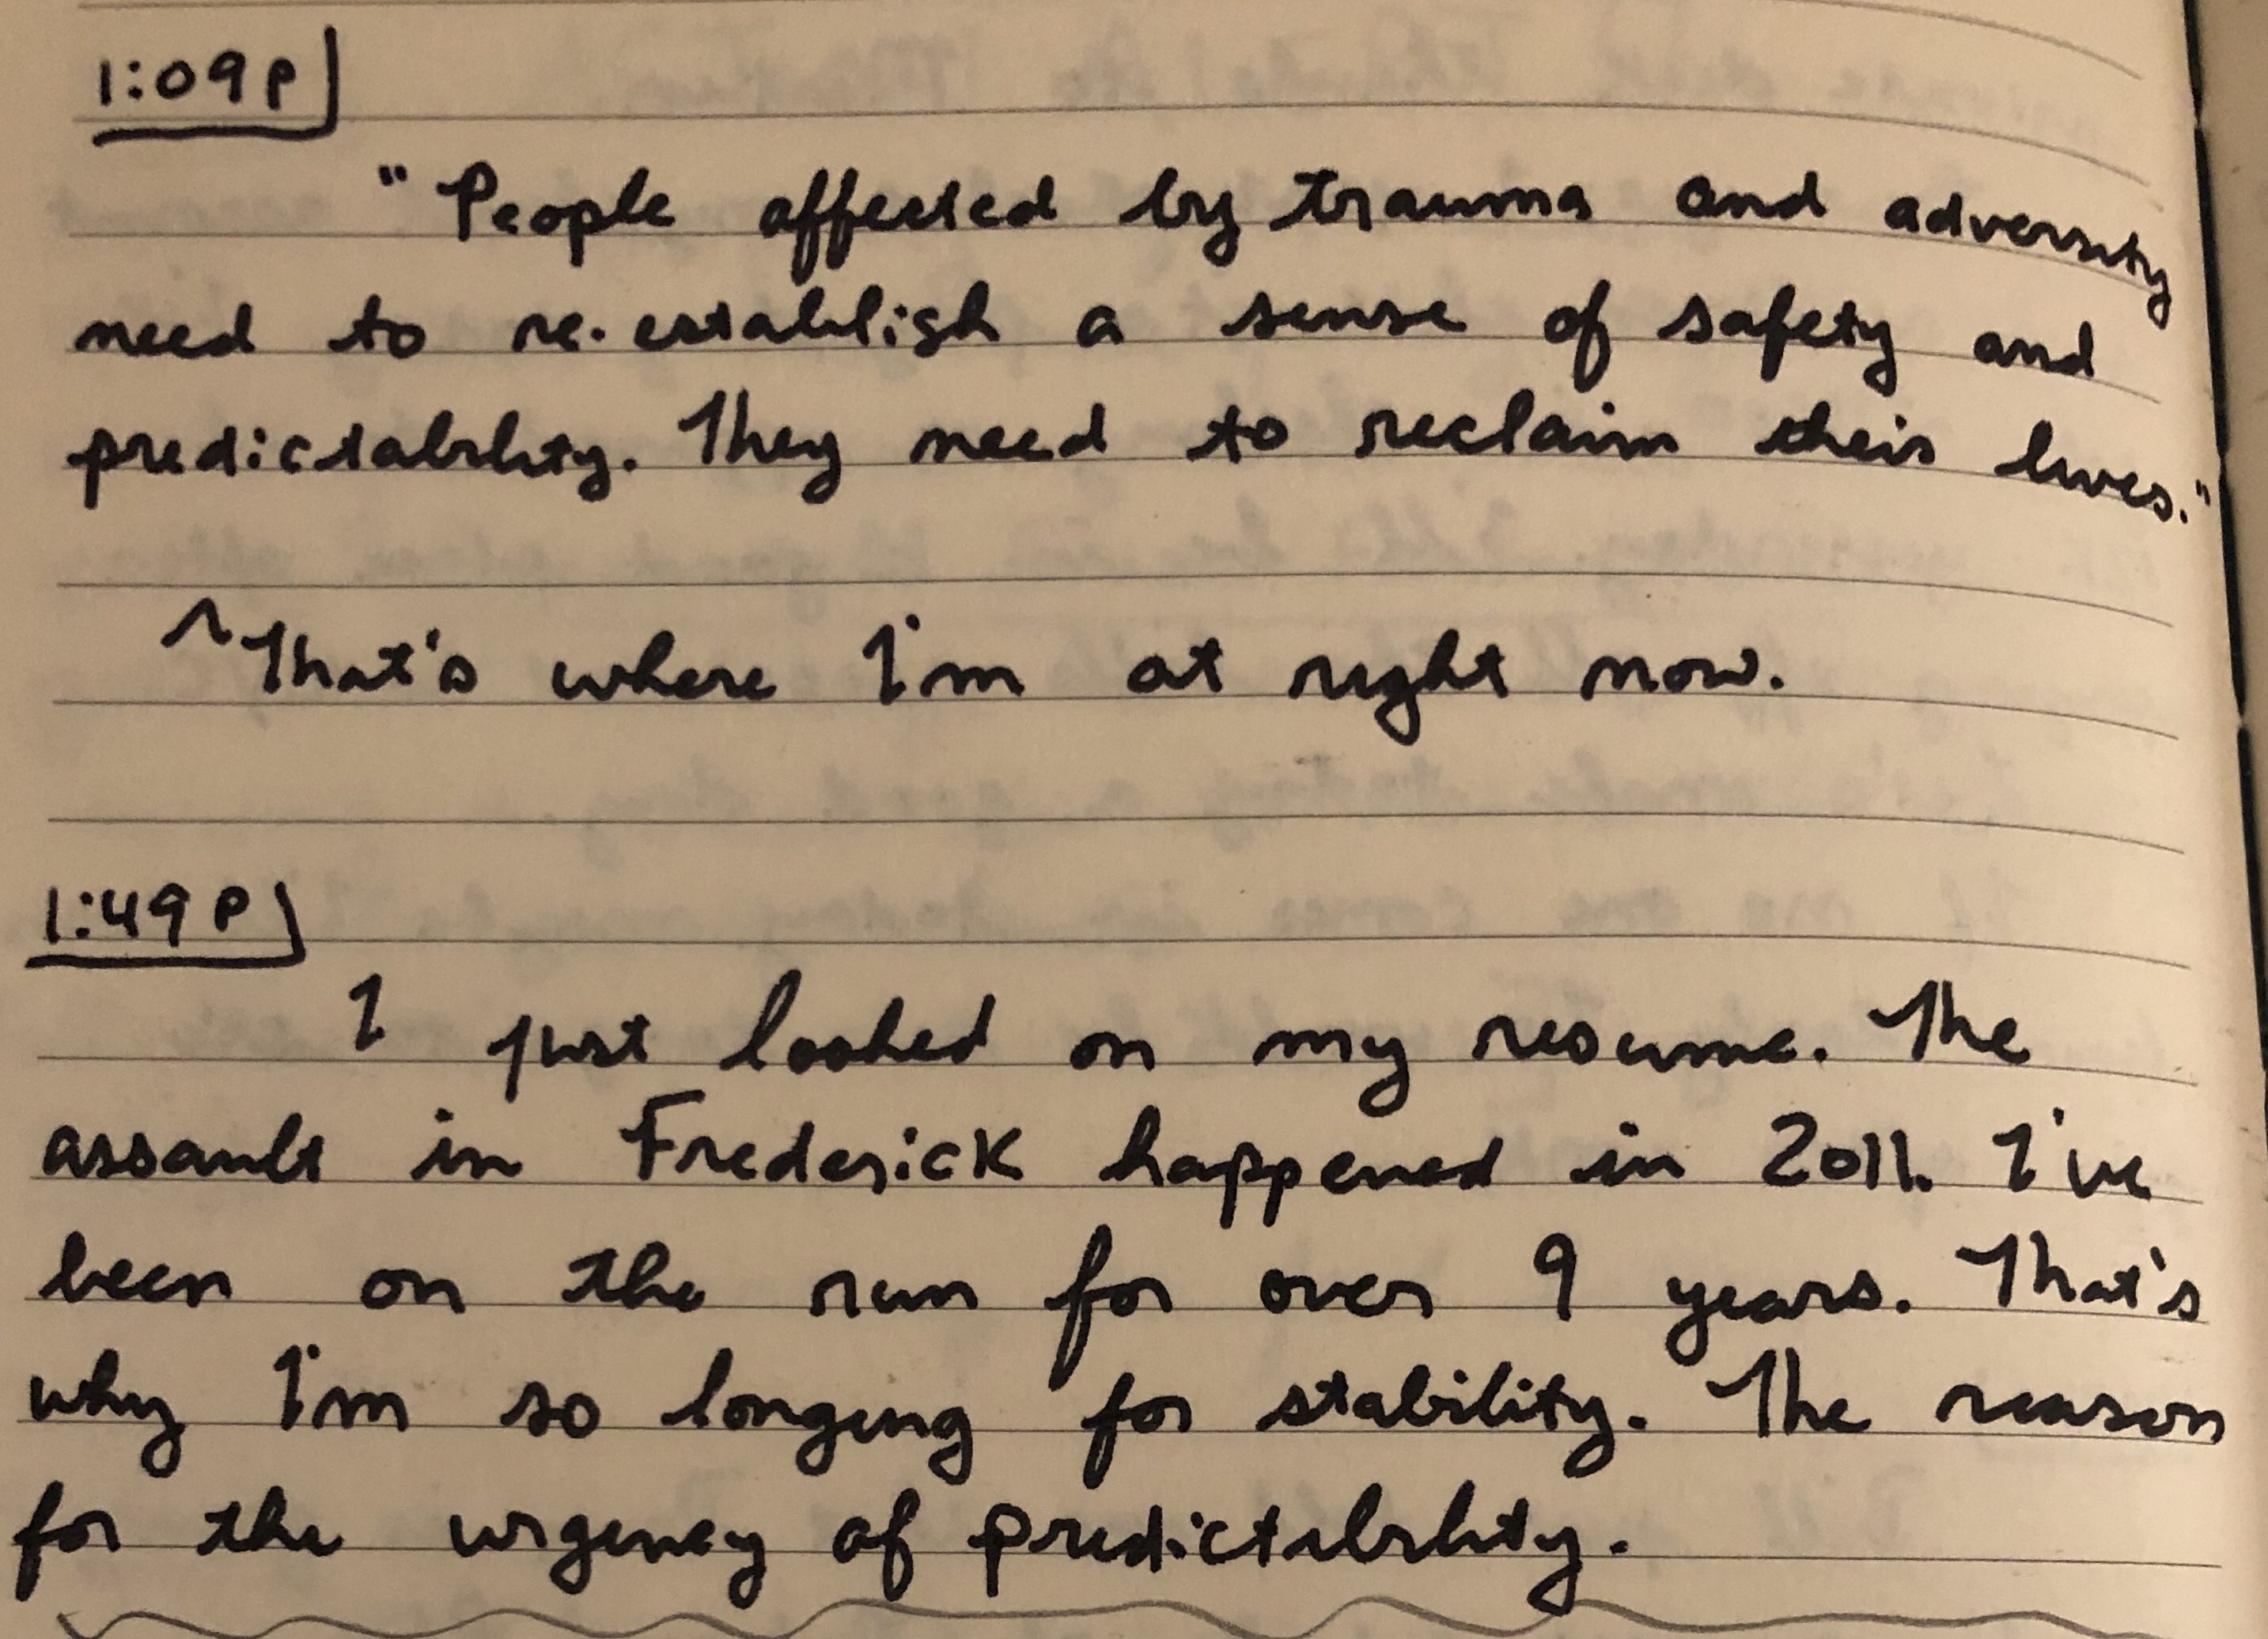 1:09P
"People affected by trauma and adversity
need to re-establish a sense of safety and
predictability. They need to reclaim their lives."
^That's where I'm at right now.
1:49P
I just looked on my resume. The
assault in Frederick happened in 2011. I've
been on the run for over 9 years. That's
why I'm so longing for stability. The reason
for the urgency of predictability.